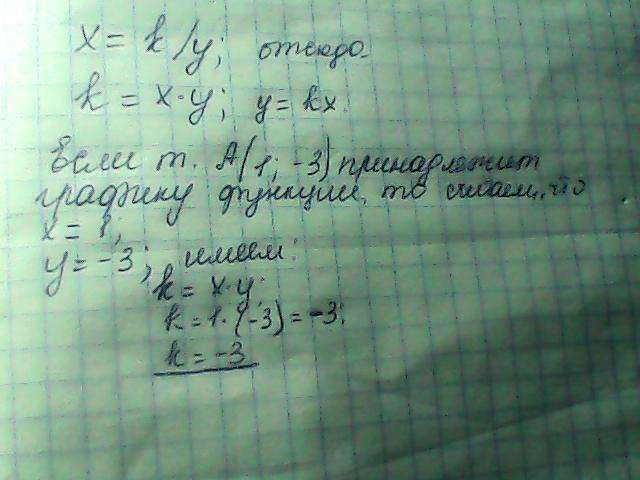 x = k/y; отсюдо
k = x·y; y = kx
Если т. A(1; -3) принадлежит
графику функции, то считаем, что
x = 1;
y = -3; имеем:
k = x·y;
k = 1·(-3) = -3;
k = -3